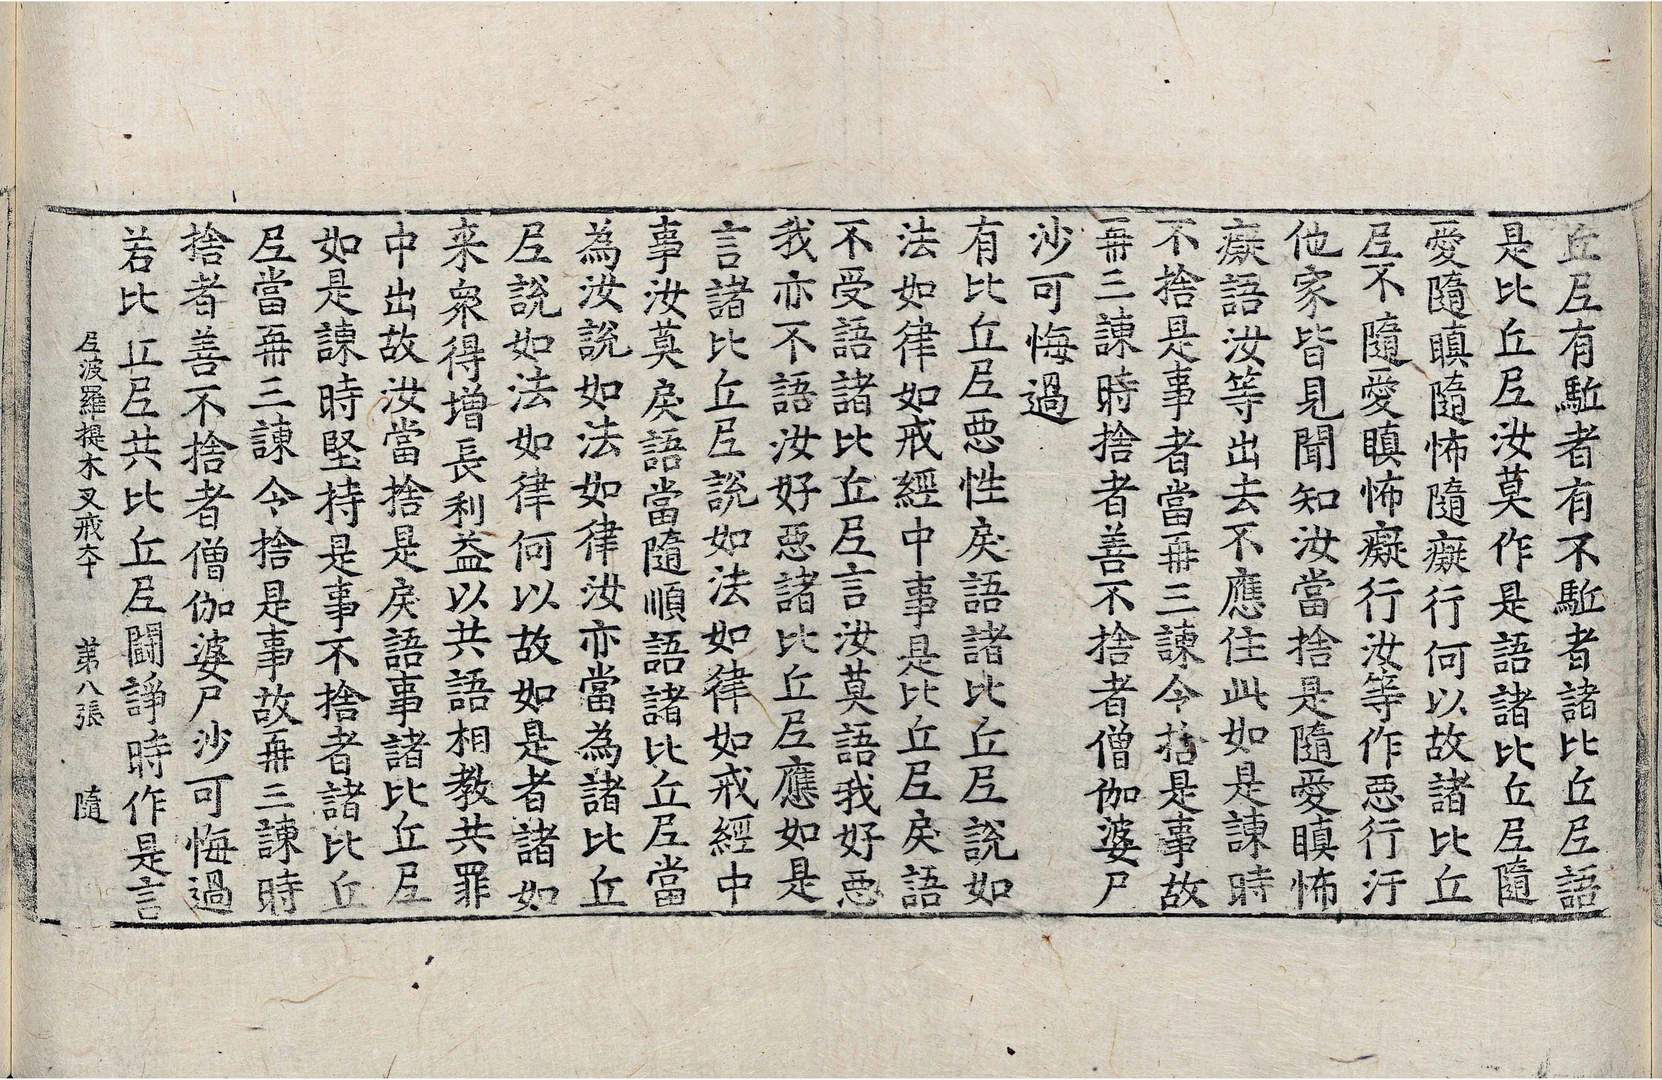 丘𡰱有駈者有不駈者諸比丘𡰱語
是比丘𡰱汝莫作是語諸比丘𡰱隨
愛隨瞋隨怖隨癡行何以故諸比丘
𡰱不隨愛瞋怖癡行汝等作惡行汙
他家皆見聞知汝當捨是隨愛瞋怖
癡語汝等出去不應住此如是諫時
不捨是事者當再三諫令捨是事故
再三諫時捨者善不捨者僧伽婆尸
沙可悔過
有比丘𡰱惡性戾語諸比丘𡰱說如
法如律如戒經中事是比丘𡰱戾語
不受語諸比丘𡰱言汝莫語我好惡
我亦不語汝好惡諸比丘𡰱應如是
言諸比丘𡰱說如法如律如戒經中
事汝莫戾語當隨順語諸比丘𡰱當
為汝說如法如律汝亦當為諸比丘
𡰱說如法如律何以故如是者諸如
来衆得增長利益以共語相教共罪
中出故汝當捨是戾語事諸比丘𡰱
如是諫時堅持是事不捨者諸比丘
𡰱當再三諫令捨是事故再三諫時
捨者善不捨者僧伽婆尸沙可悔過
若比丘𡰱共比丘𡰱鬪諍時作是言
𡰱波羅提木叉戒本 第八張 隨